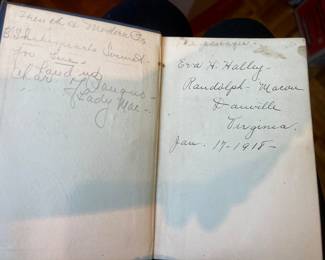 French & Modern
3 Shakespeare's Sonnet
for
Land up
char. of Banquo -
Lady Mac -
Eva H. Halley -
Randolph - Macon
Danville
Virginia.
Jan. 17 - 1918 -